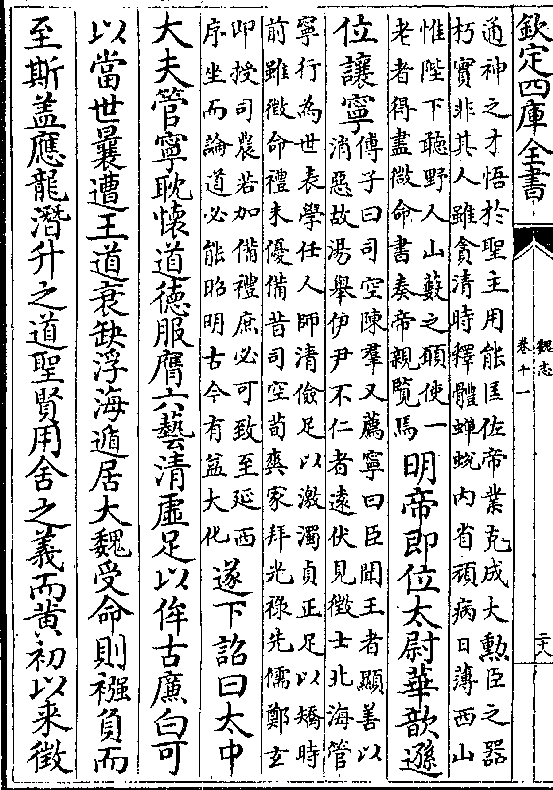 欽定四庫全書
魏志
卷十一
二十八
通神之才悟於聖主用能匡佐帝業克成大勲臣之器
朽實非其人雖貪清時釋體蟬蛻内省頑病日薄西山
惟陛下聽野人山薮之願使一
老者得盡微命書奏帝親覽焉
明帝即位太尉華歆遜
位讓寧
傅子曰司空陳羣又薦寧曰臣聞王者顯善以
消惡故湯舉伊尹不仁者遠伏見徴士北海管
寧行為世表學任人師清儉足以激濁貞正足以矯時
前雖徴命禮未優備昔司空荀爽家拜光祿先儒鄭玄
即授司農若加備禮庶必可致至延西
序坐而論道必能昭明古今有益大化
遂下詔曰太中
大夫管寧耽懷道德服膺六藝清虛足以侔古廉白可
以當世曩遭王道衰缺浮海遁居大魏受命則襁負而
至斯盖應龍潛升之道聖賢用舍之義而黄初以来徴